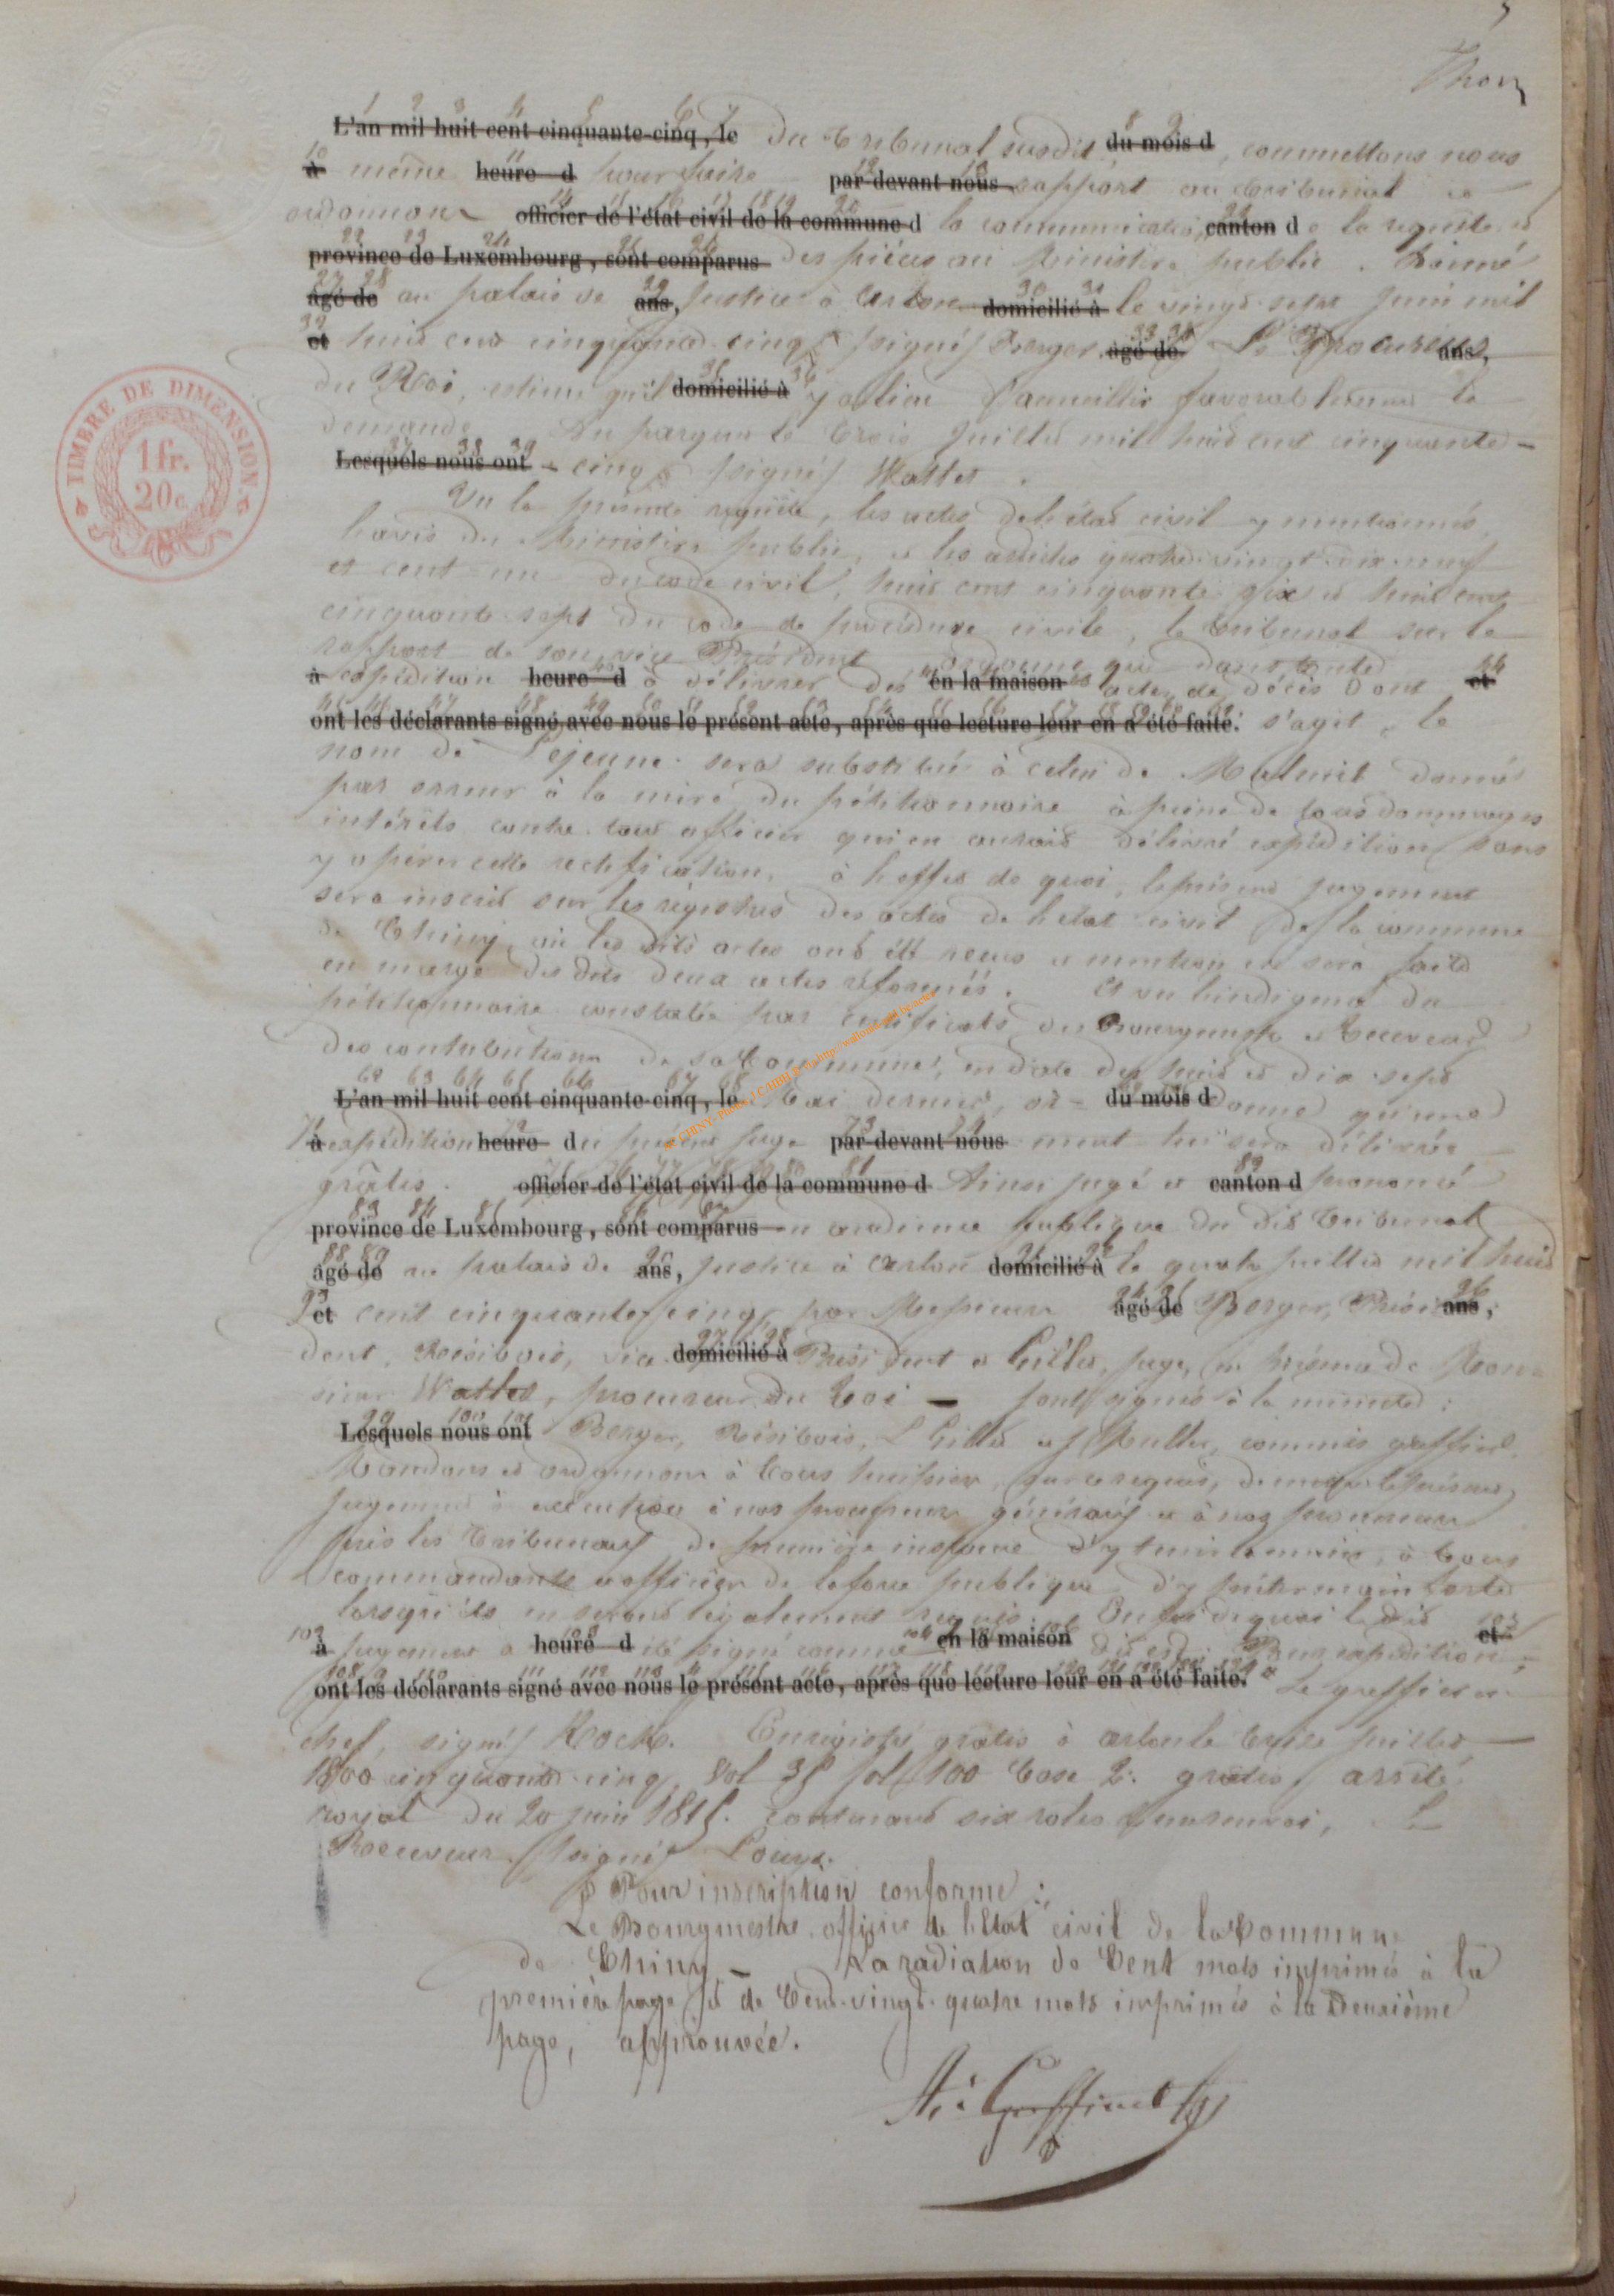 Thon
L'an mil huit cent cinquante-cinq, le du tribunal susdit du mois d, commettons nous
à même heure d pour faire par devant nous rapport au tribunal et
ordonnons officier de l'état civil de la commune d la communication canton de la requête et
province de Luxembourg, sont comparus des pièces au Ministère public. Donné
âgé de au palais de ans, justice à Arlon domicilié à le vingt-sept juin mil
et huit cent cinquante-cinq signé Berger. âgé de Le Procureur ans,
du Roi, estime qu'il domicilié à y a lieu d'accueillir favorablement la
demande Au parquet le trois juillet mil huit cent cinquante-
Lesquels nous ont cinq signé Watlet.
Vu la présente requête, les actes de l'état civil y mentionnés,
l'avis du Ministère public, et les articles quatre-vingt-dix-neuf
et cent-un du code civil, huit cent cinquante six et huit cent
cinquante-sept du code de procédure civile, le tribunal sur le
rapport de son vice Président ordonne que dans toutes
à expédition heure d à délivrer des en la maison actes de décès dont et
ont les déclarants signé avec nous le présent acte, après que lecture leur en a été faite. s'agit, le
nom de Lejeune sera substitué à celui de donné
par erreur à la mère du pétitionnaire à peine de tous dommages
intérêts contre tout officier qui en aurait délivré expédition sans
y opérer cette rectification, à l'effet de quoi, le présent jugement
sera inscrit sur les régistres des actes de l'état civil de la commune
de Chiny, où les dits actes ont été reçus et mention en sera faite
en marge des dits deux actes réformés. Et vu l'indigence du
pétitionnaire constatée par certificats du Bourgmestre et Receveur
des contributions de sa Commune, en date des huit et dix-sept
L'an mil huit cent cinquante-cinq, le Mai dernier, or- du mois d donne qu'une
à expédition heure du présent juge par devant nous ment lui sera délivrée
gratis. officier de l'état civil de la commune d Ainsi jugé et canton d prononcé
province de Luxembourg, sont comparus en audience publique du dit tribunal
âgé de au palais de ans, justice à Arlon domicilié à le quatre juillet mil huit
et cent cinquante-cinq, par Messieurs âgé de Berger, Prési ans,
dent, Résibois, vice domicilié à Président et Gilles, juge, en présence de Mon-
sieur Watlet, procureur du Roi — sont signés à la minute:
Lesquels nous ont Berger, Résibois, Gilles et Muller, commis greffier.
Mandons et ordonnons à tous huissiers, sur ce requis, de mettre le présent
jugement à exécution à nos procureurs généraux et à nos procureurs
près les tribunaux de première instance d'y tenir la main, à tous
commandants et officiers de la force publique d'y prêter main forte
lorsqu'ils en seront légalement requis. En foi de quoi le dit
à jugement a heure d été signé comme en la maison dit est. Pour expédition et
ont les déclarants signé avec nous le présent acte, après que lecture leur en a été faite. Le greffier en
chef, signé Koch. Enrégistré gratis à Arlon le treize juillet
1800 cinquante-cinq, vol 35 fol 100 Case 2. gratis, arrêté
royal du 20 juin 1815. contenant six rôles sans renvoi, Le
Receveur signé
Pour inscription conforme:
Le Bourgmestre officier de l'Etat civil de la Commune
de Chiny — La radiation de Cent mots imprimés à la
première page et de Cent-vingt-quatre mots imprimés à la Deuxième
page, approuvée.
TIMBRE DE DIMENSION.
1 fr.
20 c.